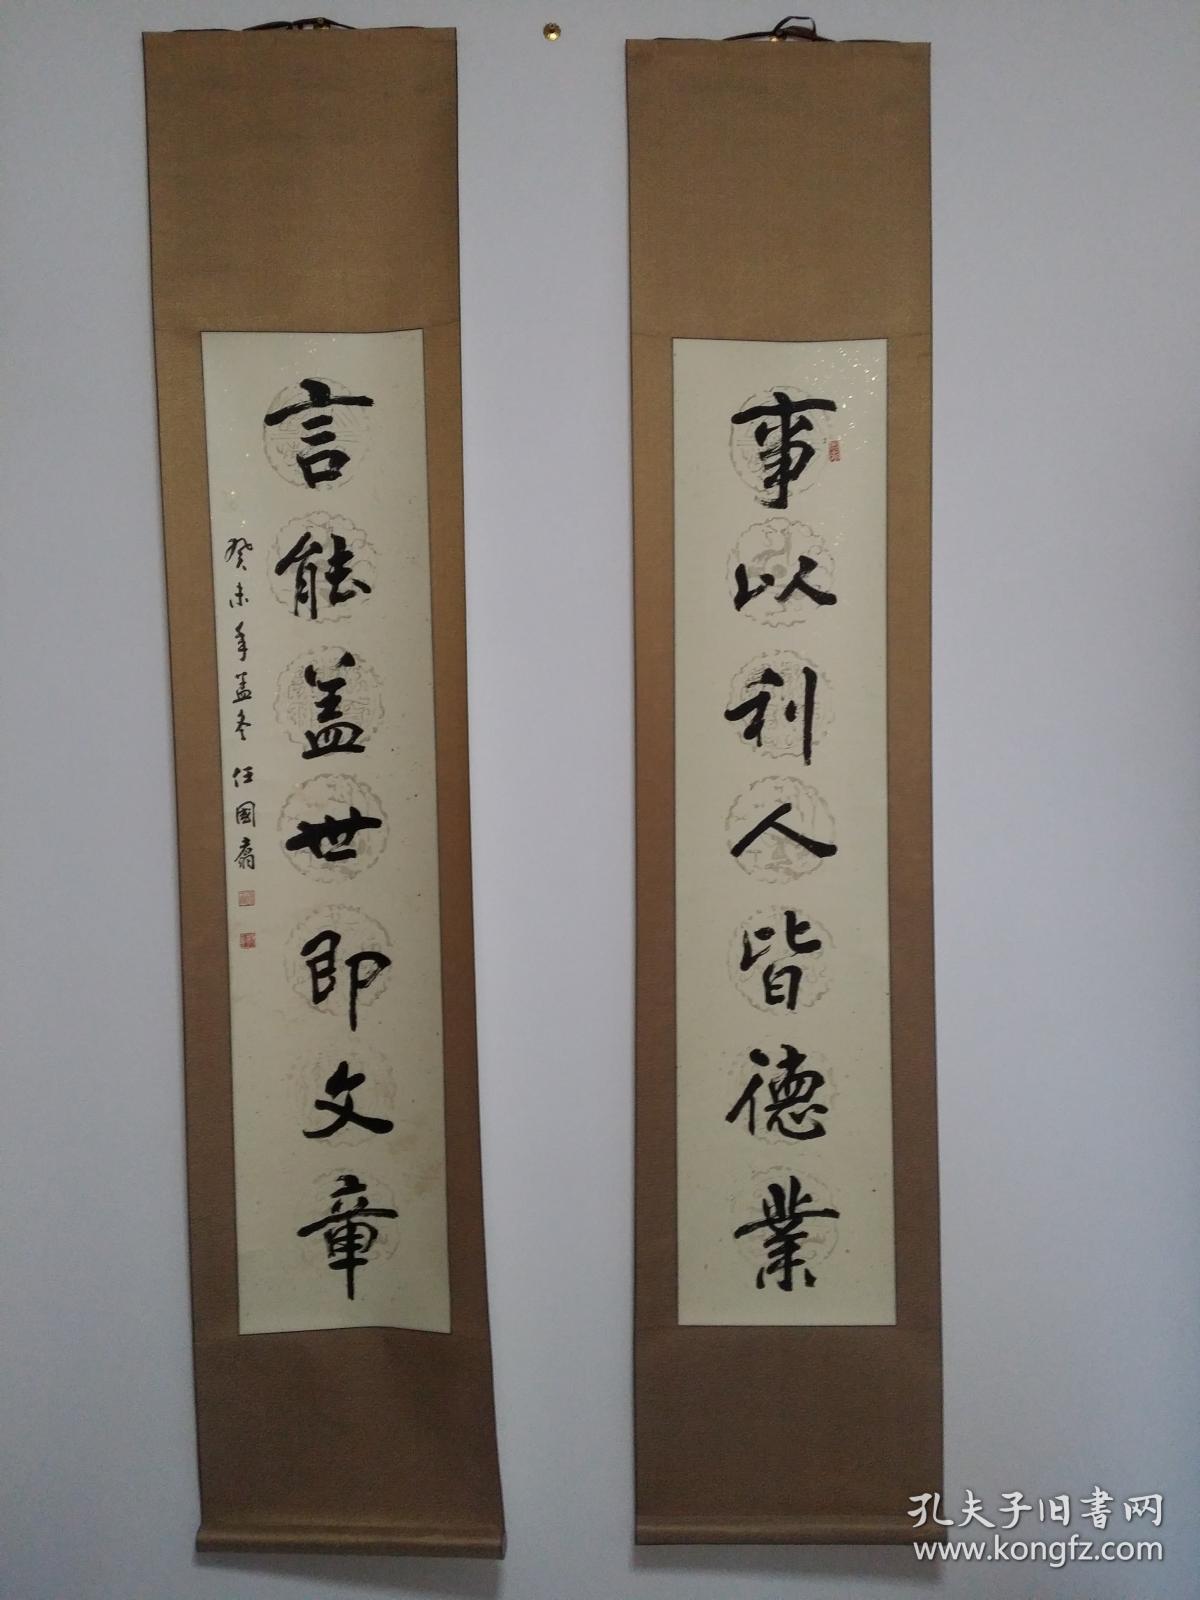 事以利人皆德业
言能盖世即文章
癸未年孟冬 任國
孔夫子旧書网
www.kongfz.com